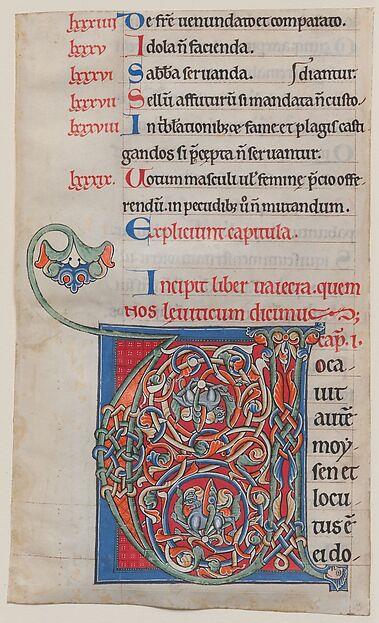 lxxxiiii De fr̄e uenundato et comparato.
lxxxv Idola n̄ facienda.
lxxxvi Sabb̄a seruanda. diantur.
lxxxvii Sellū affuturū si mandata n̄ custo
lxxxviii In triblationibꝫ fame et plagis casti
gandos si p̄cepta n̄ seruantur.
lxxxix. Uotum masculi uł femine p̄cio offe
rendū. in pecudibꝫ ū n̄ mutandum.
Expliciunt capitula.
Incipit liber uaiecra. quem
nos leuiticum dicimus;
cap̄. i.
V
oca
uit
autē
moy
sen et
locu
tus ē
ei do